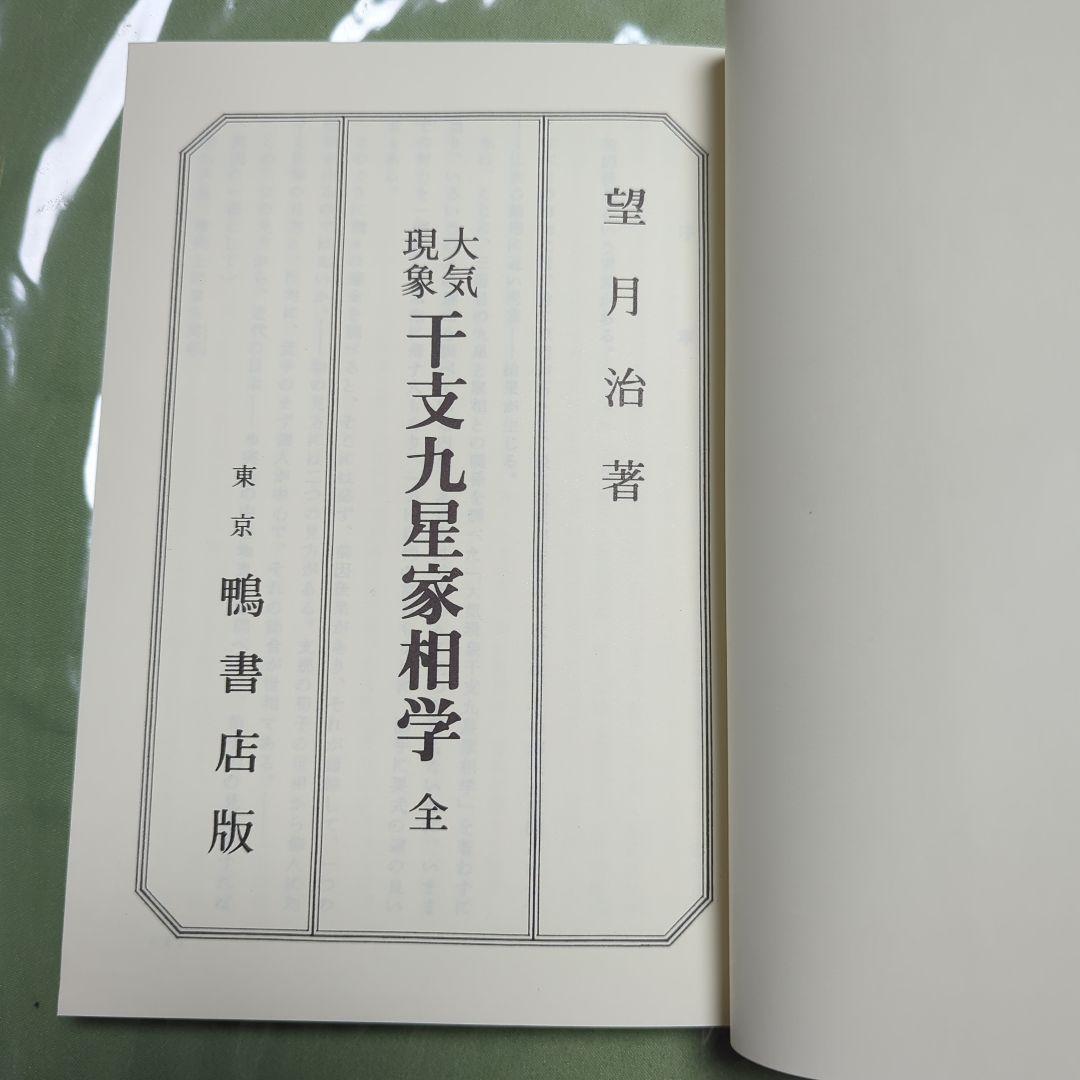 望月治著
大気
現象
干支九星家相学 全
東京 鴨書店版